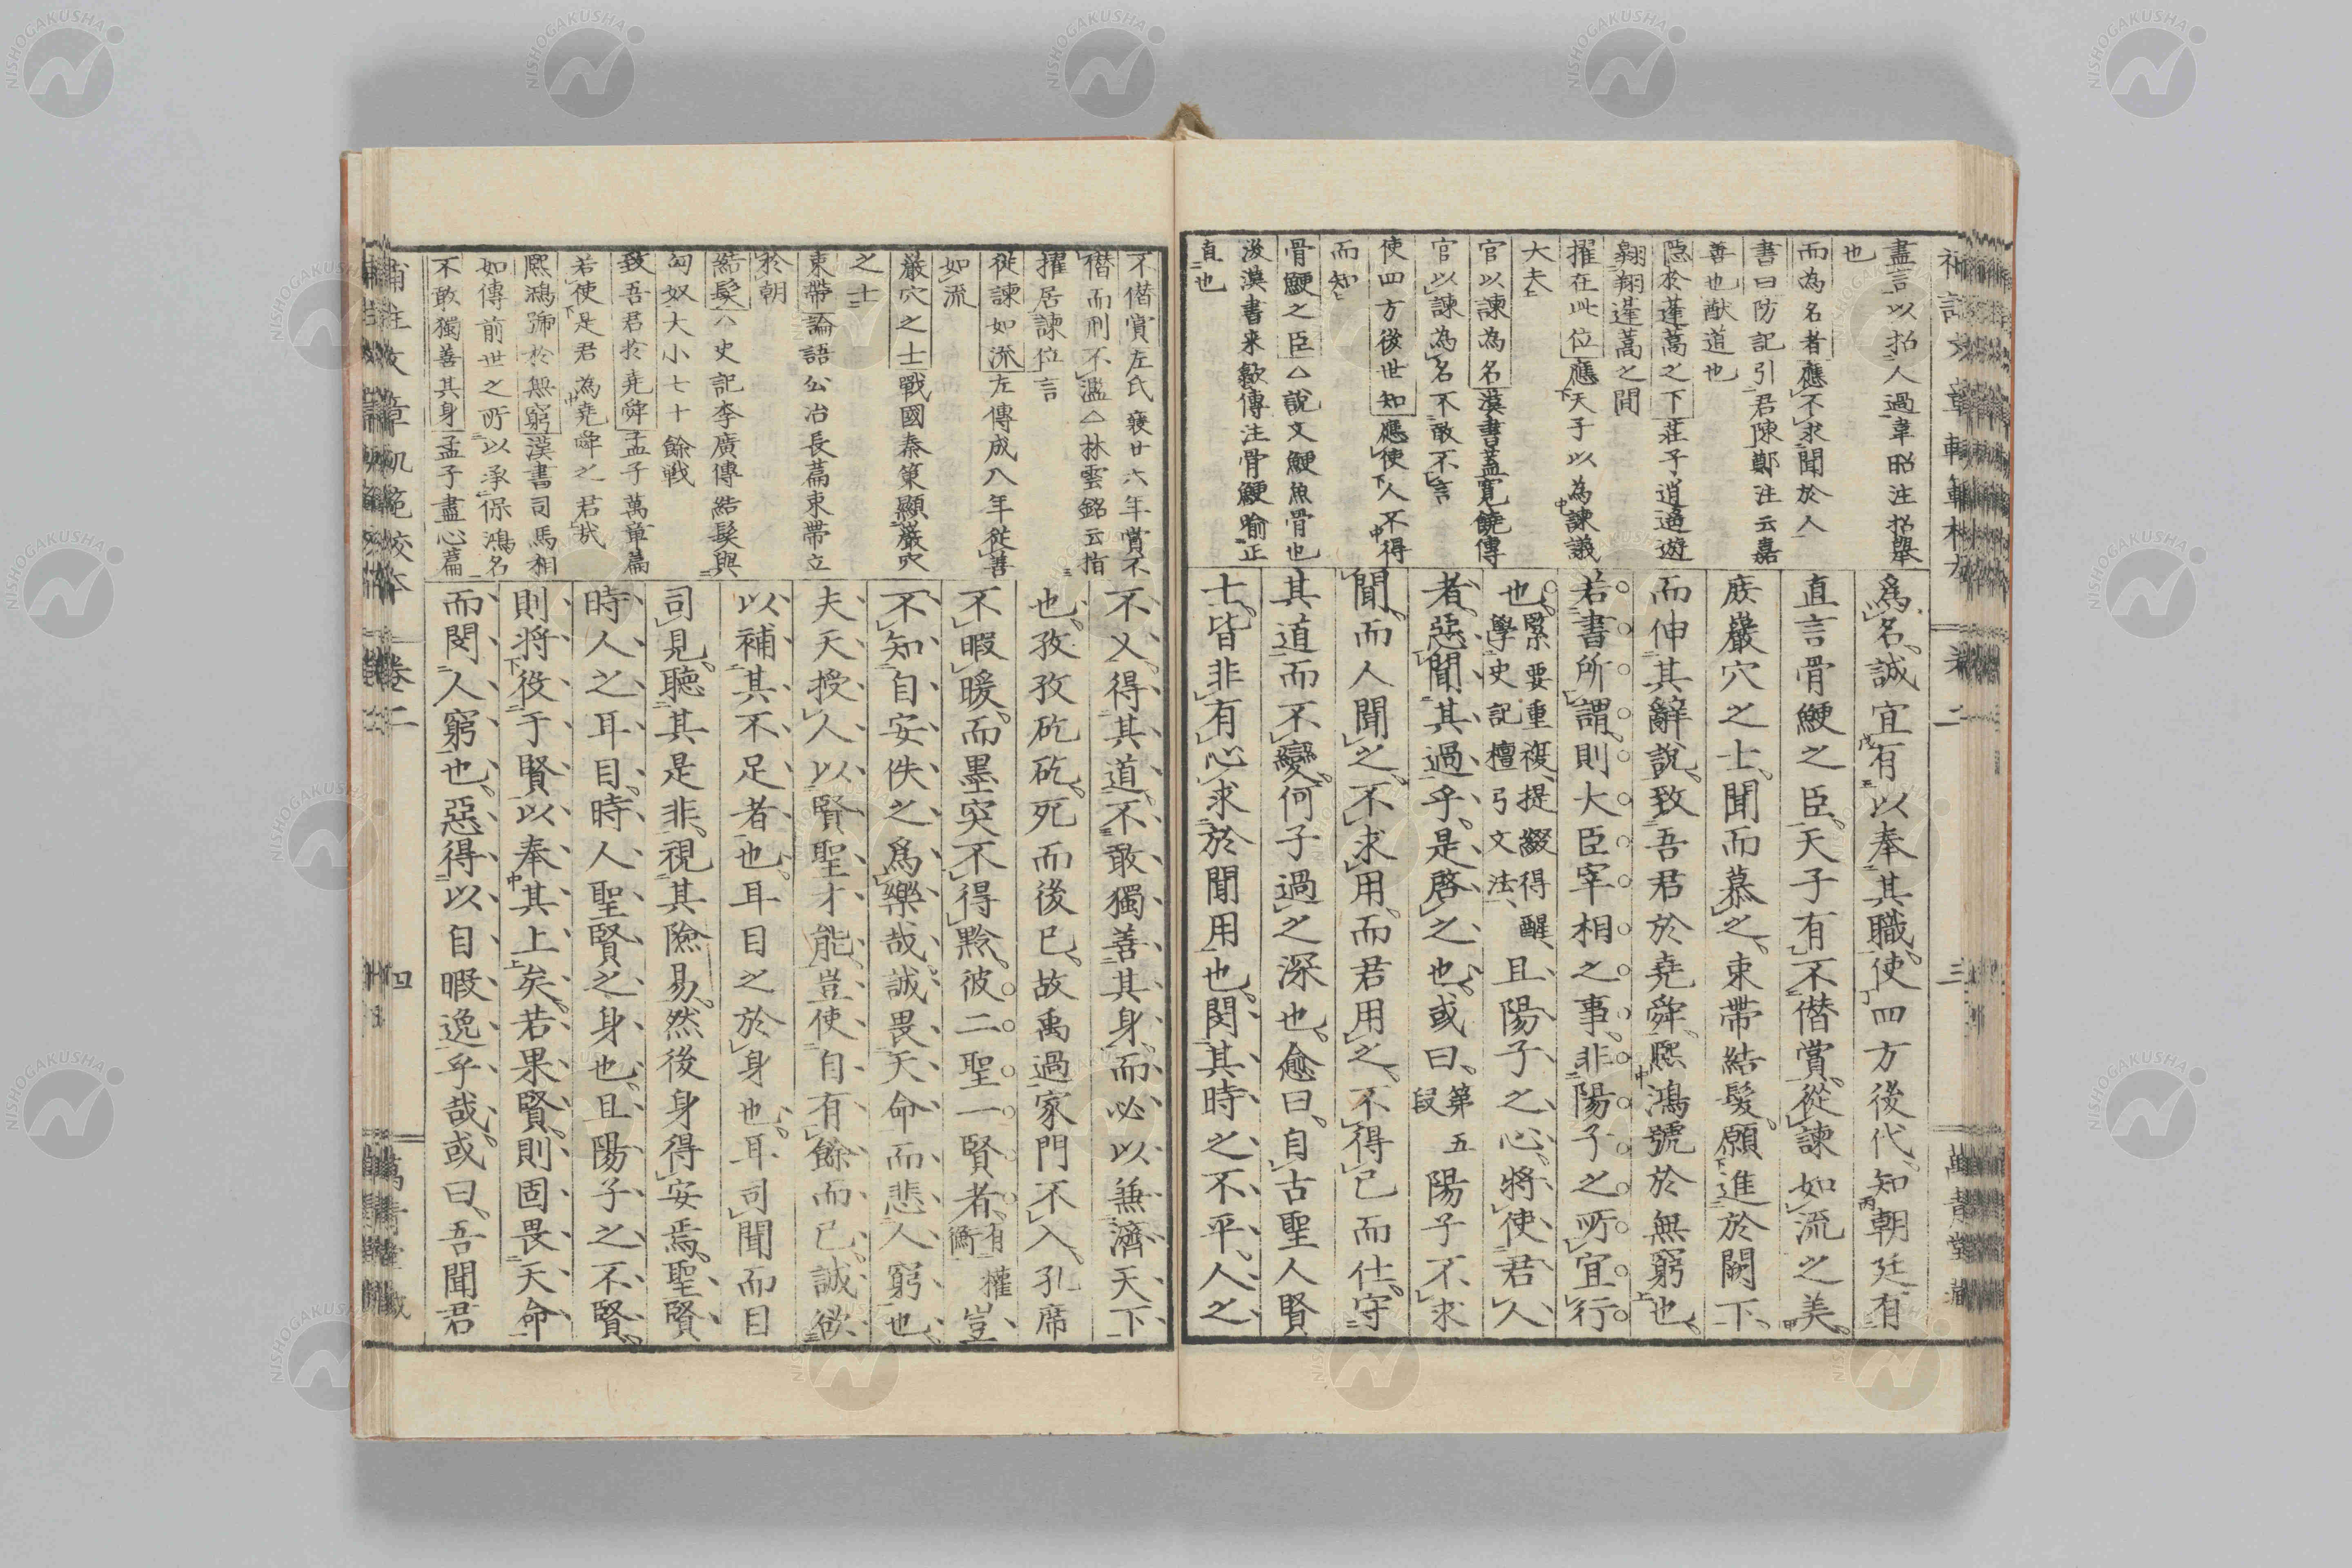 盡言以招人過韋昭注招舉
也
而為名者應不求聞於人
書曰防記引君陳鄭注云嘉
善也猷道也
隱於蓬蒿之下莊子逍遙遊
翱翔蓬蒿之間
擢在此位應天子以為諫議
大夫
官以諫為名漢書蓋寬饒傳
官以諫為名不敢不言
使四方後世知應使人不得
而知
骨鯁之臣△說文鯁魚骨也
後漢書来歙傳注骨鯁喻正
直也
爲名誠宜有以奉其職使四方後代知朝廷有
直言骨鯁之臣天子有不僭賞從諫如流之美
庶巖穴之士聞而慕之束帶結髮願進於闕下
而伸其辭說致吾君於堯舜熈鴻號於無窮也
若書所謂則大臣宰相之事非陽子之所宜行
也緊要重複提綴得醒學史記檀弓文法且陽子之心將使君人
者惡聞其過乎是啓之也或曰第五段陽子不求
聞而人聞之不求用而君用之不得已而仕守
其道而不變何子過之深也愈曰自古聖人賢
士皆非有心求於聞用也閔其時之不平人之
三
不僭賞左氏襄廿六年賞不
僭而刑不濫△林雲銘云指
擢居諫位言
從諫如流左傳成八年從善
如流
巖穴之士戰國秦策顯巖穴
之士
束帶論語公冶長篇束帶立
於朝
結髮△史記李廣傳結髮與
匈奴大小七十餘戰
致吾君於堯舜孟子萬章篇
若使是君為堯舜之君哉
熈鴻號於無窮漢書司馬相
如傳前世之所以承保鴻名
不敢獨善其身孟子盡心篇
不乂得其道不敢獨善其身而必以兼濟天下
也孜孜矻矻死而後已故禹過家門不入孔席
不暇暖而墨突不得黔彼二聖一賢者有權衡豈
不知自安佚之爲樂哉誠畏天命而悲人窮也
夫天授人以賢聖才能豈使自有餘而已誠欲
以補其不足者也耳目之於身也耳司聞而目
司見聽其是非視其險易然後身得安焉聖賢
時人之耳目時人聖賢之身也且陽子之不賢
則將役于賢以奉其上矣若果賢則固畏天命
而閔人窮也惡得以自暇逸乎哉或曰吾聞君
卷二
四